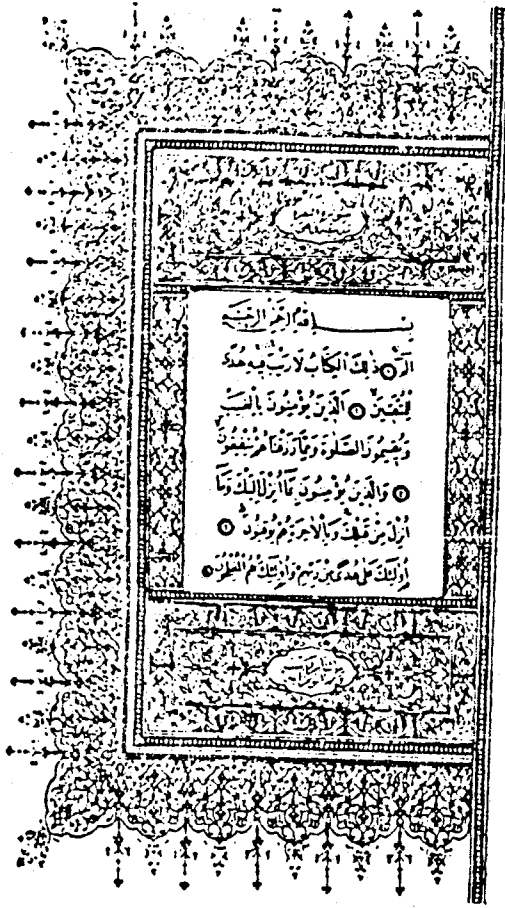 بِسْمِ اللّٰهِ الرَّحْمٰنِ الرَّحِيمِ
الٓمٓ ۝ ذٰلِكَ الْكِتَابُ لَا رَيْبَ فِيهِ هُدًى
لِلْمُتَّقِينَ ۝ اَلَّذِينَ يُؤْمِنُونَ بِالْغَيْبِ
وَيُقِيمُونَ الصَّلٰوةَ وَمِمَّا رَزَقْنَاهُمْ يُنْفِقُونَ
۝ وَالَّذِينَ يُؤْمِنُونَ بِمَٓا اُنْزِلَ اِلَيْكَ وَمَٓا
اُنْزِلَ مِنْ قَبْلِكَ وَبِالْاٰخِرَةِ هُمْ يُوقِنُونَ ۝
اُو۬لٰٓئِكَ عَلٰى هُدًى مِنْ رَبِّهِمْ وَاُو۬لٰٓئِكَ هُمُ الْمُفْلِحُونَ ۝